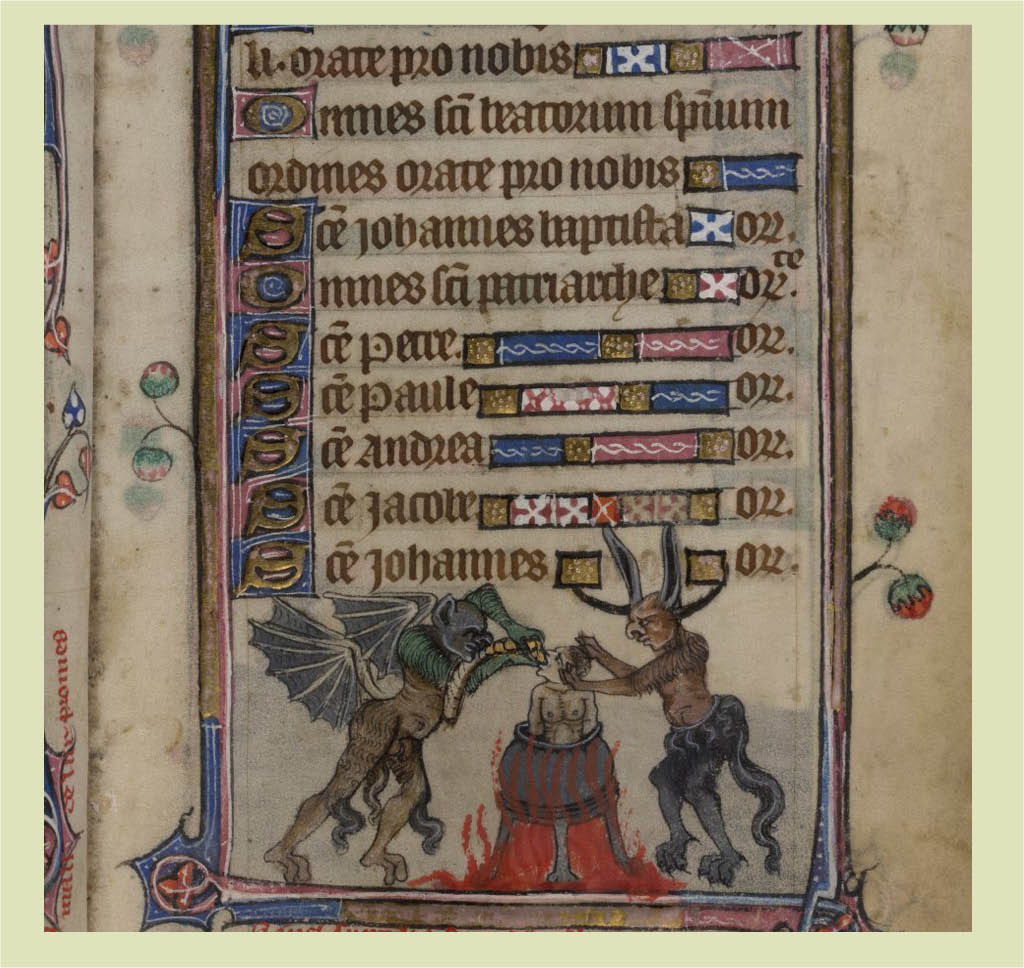 li. orate pro nobis
Omnes sc̄i beatorum sp̄uum
ordines orate pro nobis
Sc̄e johannes baptista or.
Omnes sc̄i patriarche or.te
Sc̄e Petre. or.
Sc̄e Paule or.
Sc̄e Andrea or.
Sc̄e jacobe or.
Sc̄e johannes or.